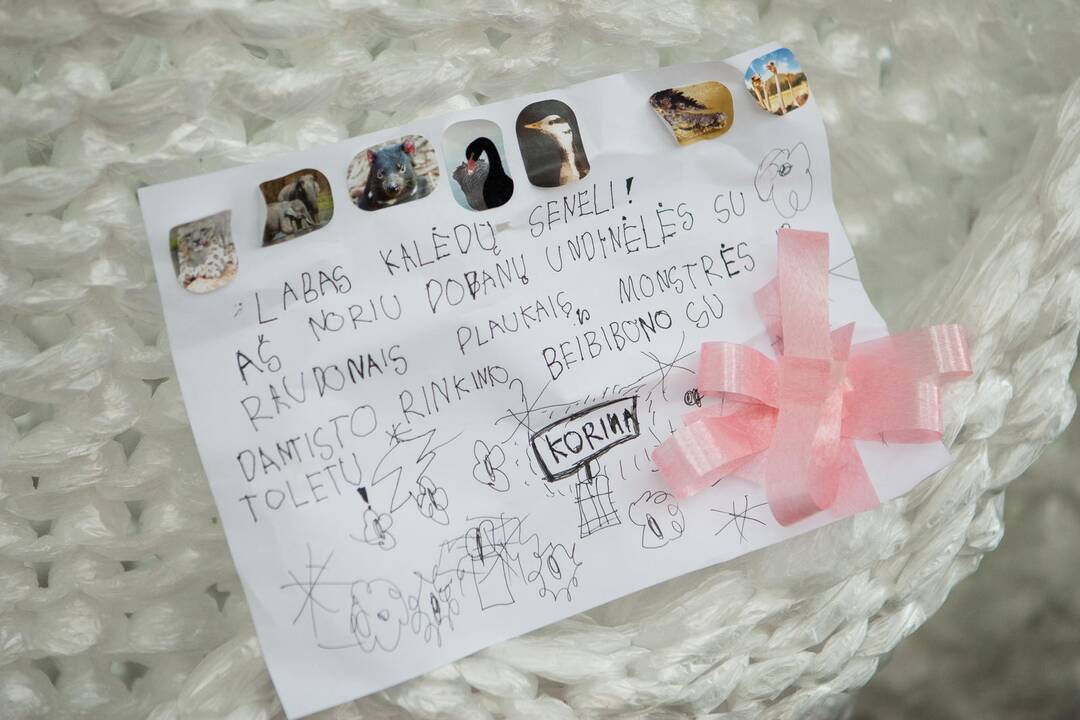 LABAS KALĖDŲ SENELI!
AŠ NORIU DOBANŲ UNDINĖLĖS SU
RAUDONAIS PLAUKAIS, MONSTRĖS
DANTISTO RINKINO, BEIBIBONO SU
TOLETU!
KORINA